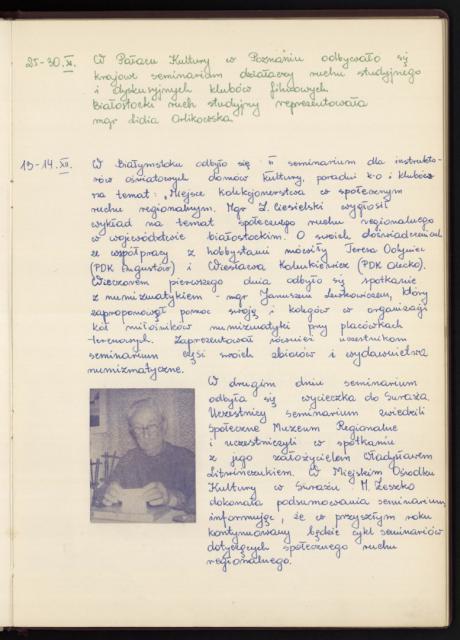 25-30.XI. W Pałacu Kultury w Poznaniu odbywało się
krajowe seminarium działaczy ruchu studyjnego
i dyskusyjnych klubów filmowych
Białostocki ruch studyjny reprezentowała
mgr Lidia Orlikowska
13-14.XII. W Białymstoku odbyło się II seminarium dla instrukto-
rów oświatowych domów kultury, poradni k-o i klubów
na temat: „Miejsce kolekcjonerstwa w społecznym
ruchu regionalnym. Mgr Z. Ciesielski wygłosił
wykład na temat społecznego ruchu regionalnego
w województwie białostockim. O swoich doświadczeniach
ze współpracy z hobbystami mówiły Teresa
(PDK Augustów) i Wiesława (PDK Olecko).
Wieczorem pierwszego dnia odbyło się spotkanie
z numizmatykiem - mgr Januszem który
zaproponował pomoc swoją i kolegów w organizacji
kół miłośników numizmatyki przy placówkach
terenowych. Zaprezentował również uczestnikom
seminarium część swoich zbiorów i wydawnictwa
numizmatyczne.
W drugim dniu seminarium
odbyła się wycieczka do Suraża.
Uczestnicy seminarium zwiedzili
Społeczne Muzeum Regionalne
i uczestniczyli w spotkaniu
z jego założycielem Władysławem
Litwińczukiem. W Miejskim Ośrodku
Kultury w Surażu M. Leszko
dokonała podsumowania seminarium
informując, że w przyszłym roku
kontynuowany będzie cykl seminariów
dotyczących społecznego ruchu
regionalnego.